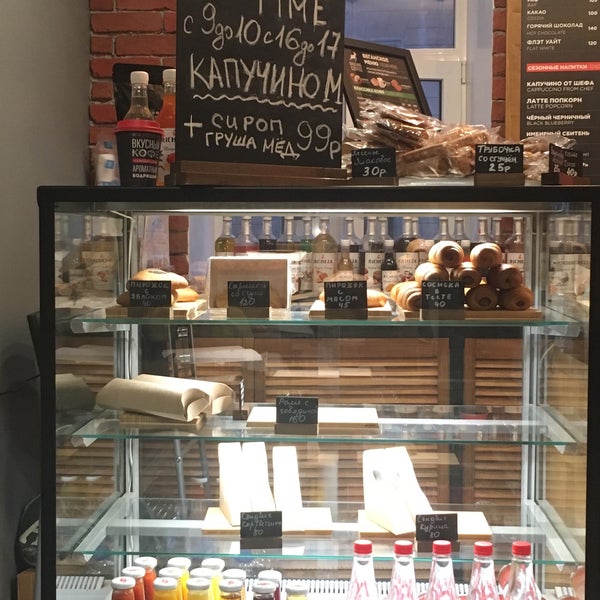 TIME
с 9 до 10 с 16 до 17
КАПУЧИНО M
+ СИРОП
ГРУША МЁД 99р
ВКУСНЫЙ
КОФЕ
АРОМАТНЫЙ
ВЕГАНСКОЕ
МЕНЮ
30р
ТРУБОЧКА
СО СГУЩЁН
25р
КАКАО
COCOA
ГОРЯЧИЙ ШОКОЛАД
HOT CHOCOLATE
ФЛЭТ УАЙТ
FLAT WHITE
СЕЗОННЫЕ НАПИТКИ
КАПУЧИНО ОТ ШЕФА
CAPPUCCINO FROM CHEF
ЛАТТЕ ПОПКОРН
LATTE POPCORN
ЧЁРНЫЙ ЧЕРНИЧНЫЙ
BLACK BLUEBERRY
ИМБИРНЫЙ СБИТЕНЬ
ПИРОЖОК
С
ЯБЛОКОМ
40
ПИРОЖОК
С
МЯСОМ
45
СОСИСКА
В
ТЕСТЕ
40
Ролл с
говядиной
160
Сэндвич
80
Сэндвич
Курица
80